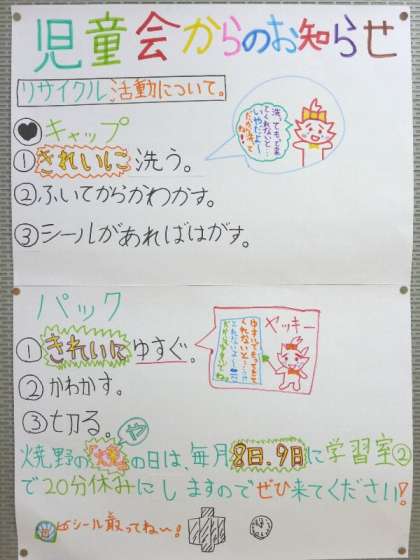 児童会からのお知らせ
リサイクル活動について。
キャップ
①きれいに洗う。
②ふいてからかわかす。
③シールがあればはがす。
洗ってもって来
てくれないと…
いやだよ〜
パック
①きれいにゆすぐ。
②かわかす。
③切る。
ヤッキー
ゆすいでもってきて
くれないと…
焼野の の日は、毎月8日、9日に学習室②
で20分休みにしますのでぜひ来てください!
シール貼ってね〜!